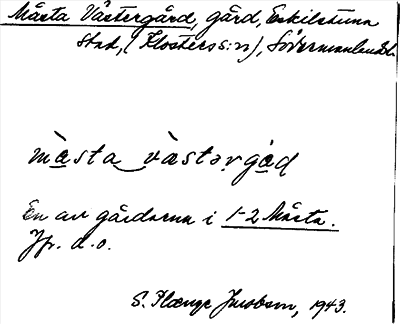 Måsta Västergård, gård, Eskilstuna
stad, (Klosters s:n), Södermanland.
ma̲sta‿väster̥gå̲d
En av gårdarna i 1-2 Måsta.
Jfr. d.o.
S. Plænge Jacobson, 1943.